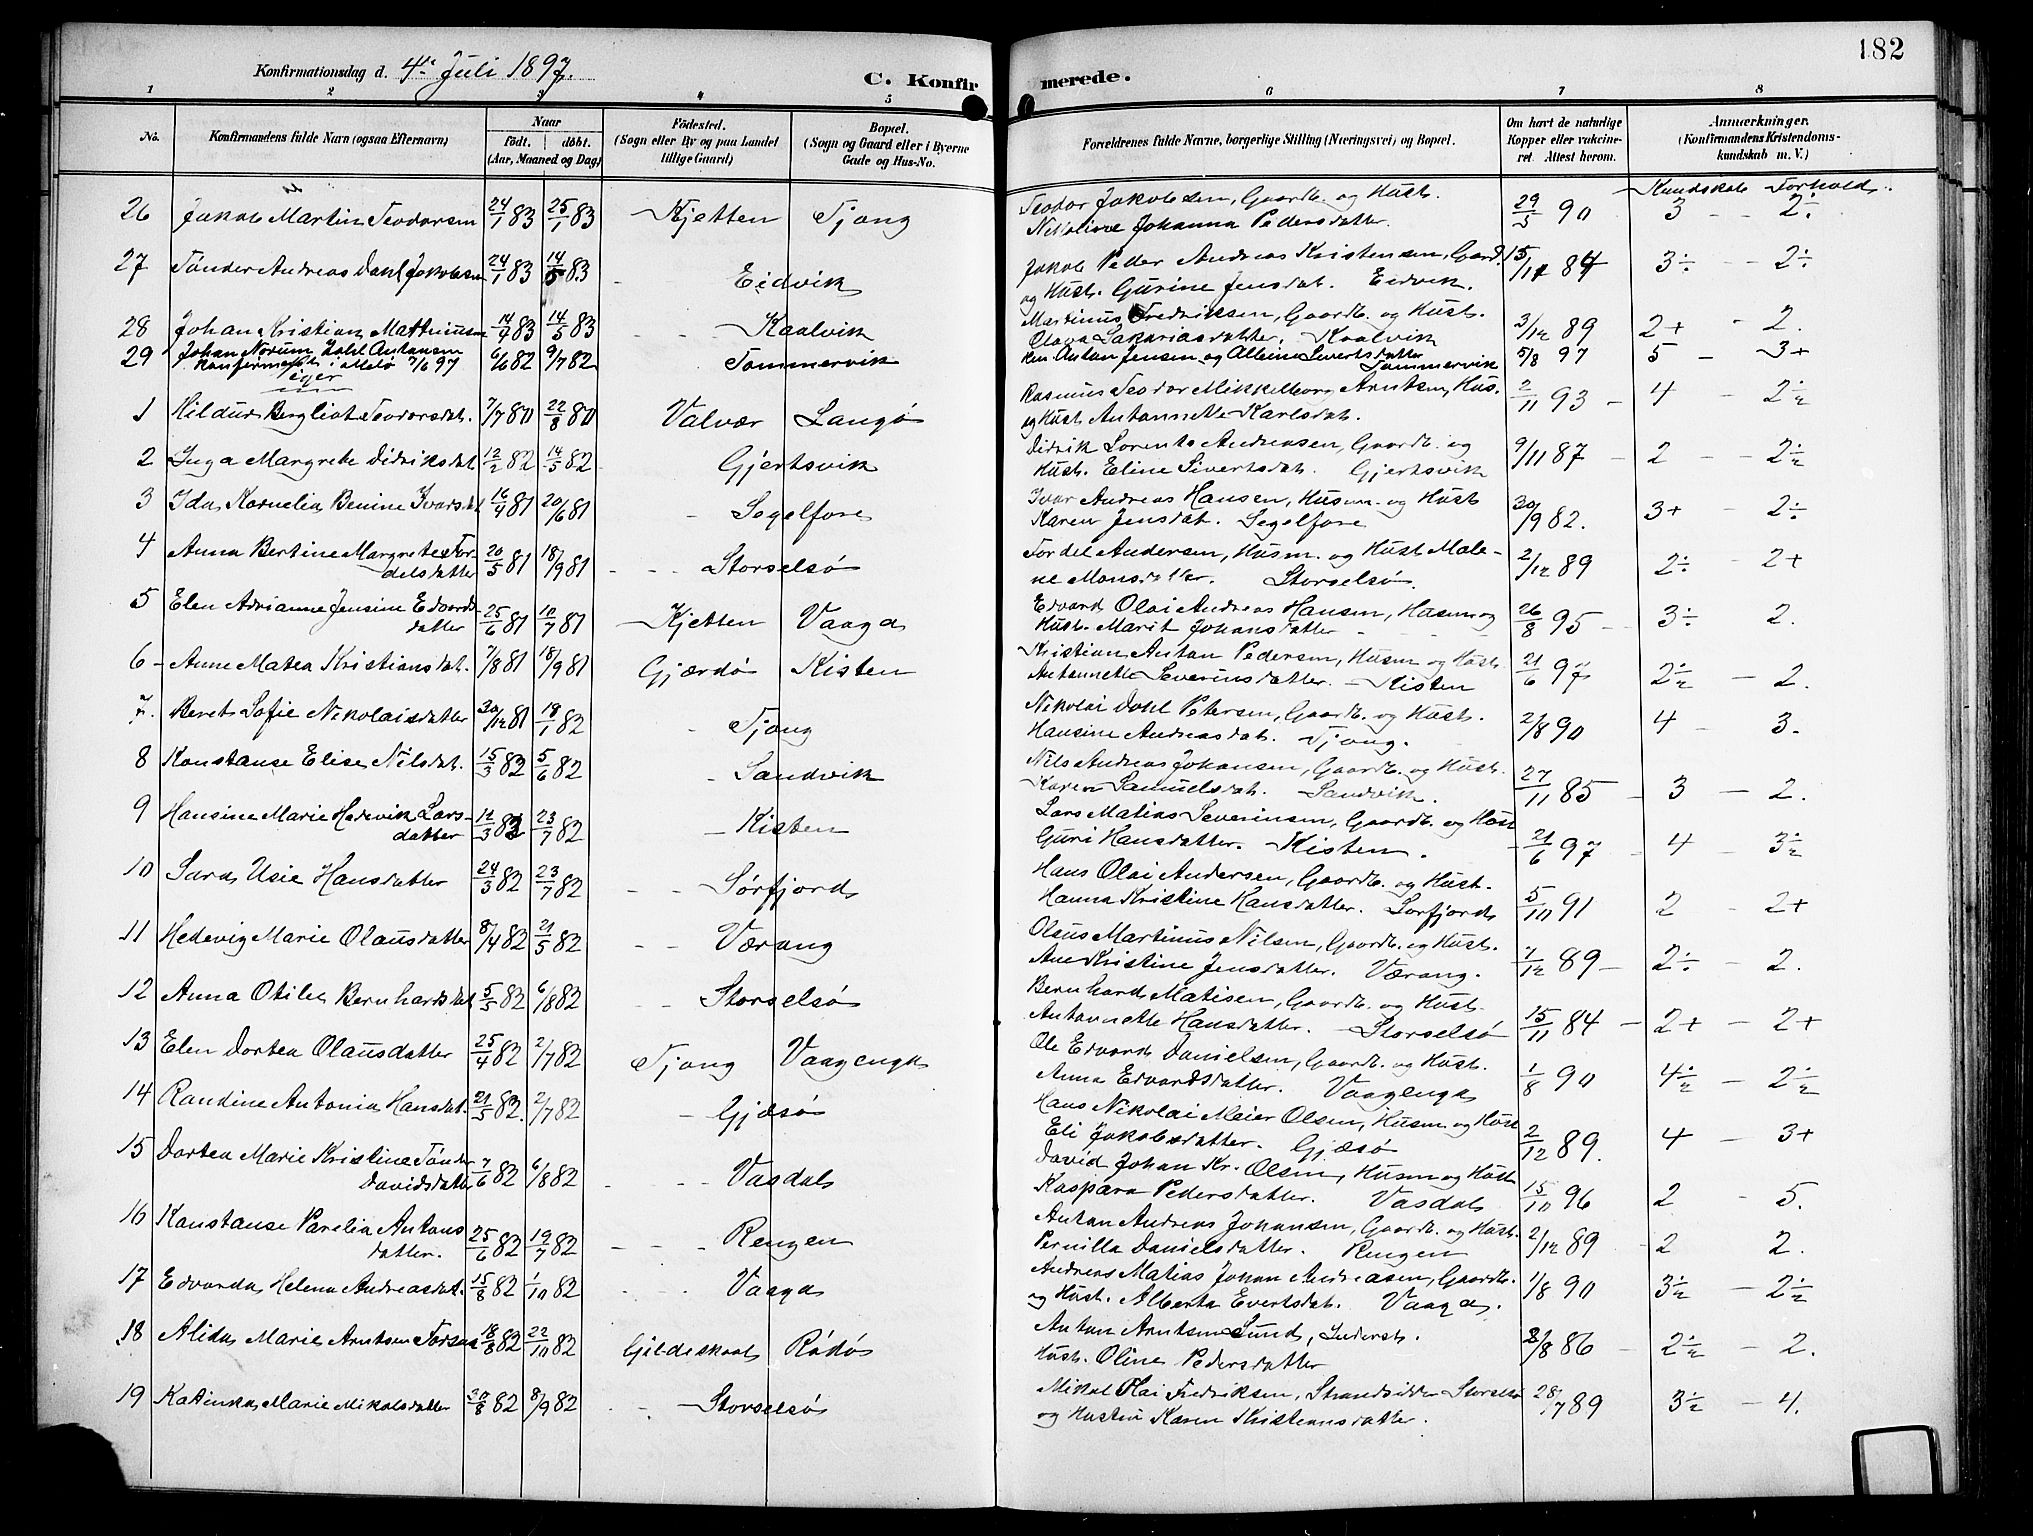 182
Konfirmationsdag d. 4de Juli 1897.
C. Konfirmerede.
1 2 3 4 5 6 7 8
No. Konfirmandens fulde Navn (ogsaa Efternavn) Naar födt. döbt. (Aar, Maaned og Dag) Födested. (Sogn eller By og paa Landet tillige Gaard) Bopæl. (Sogn og Gaard eller i Byerne Gade og Hus-No. Forældrenes fulde Navne, borgerlige Stilling (Næringsvei) og Bopæl. Om havt de naturlige Kopper eller vakcineret. Attest herom. Anmærkninger. (Konfirmandens Kristendomskundskab m. V.)
Kundskab Forhold
26 Jakob Martin Teodorsen 24/1 83 25/1 83 Kjetten Tjong Teodor Jakobsen, Gaardb. og Hust. 29/5 90 3 - - 2÷
Nikoline Johanna Pedersdatter.
27 Tönder Andreas Dahl Jakobsen 24/1 83 14/5 83 - Eidvik Jakob Peder Andreas Kristensen, Gaard. 15/11 84 3÷ - - 2÷
og Hust. Gurine Jensdat. Eidvik.
28 Johan Kristian Martinusen 14/4 83 14/5 83 - - Kaalvik Martinus Fredriksen, Gaardb. og Hust. 3/12 89 2+ - 2.
Olava Sakariasdatter. Kaalvik
29 Johan Norum Dahl Antonsen 6/6 82 9/7 82 Tommervik Anton Jensen og Albine Sivertsdatter 5/8 97 5 - 3+
Tommervik
Piger
1 Hildur Bergliot Teodorsdat. 7/7 80 22/8 80 Valvær Langö Rasmus Teodor Mikkelborg Arntsen, Hus. 2/11 93 - 4 - 2½
og Hust Antonnette Karlsdat.
2 Inga Margrete Didriksdat 12/2 82 14/5 82 - Gjertsvik Didrik Lorents Andreasen, Gaardb. og 9/11 87 - 2 - - 2½
Hust. Eline Sivertsdat. Gjertsvik
3 Ida Kornelia Benine Ivarsdat 16/4 81 20/6 81 - Segelfore Ivar Andreas Hansen, Husm. og Hust 30/9 82. 3+ - 2÷
Karen Jensdat. Segelfore
4 Anna Bertine Margrete Tor- 20/5 81 18/9 81 - - - Storselsö Tordel Andersen, Husm. og Hust Male- 2/12 89 2÷ - 2+
delsdatter ne Monsdatter. Storselsö.
5 Elen Adrianne Jensine Edvards- 25/6 81 10/7 81 Kjetten Vaaga Edvard Olai Andreas Hansen, Husm og 26/8 95 - 3÷ 2.
datter Hust. Marit Johansdatter
6 - Anne Matea Kristiansdat. 7/8 81 18/9 81 Gjærdö Kisten Kristian Anton Pedersen, Husm og Hust. 21/6 97 2½ - 2.
Antonnette Severinsdatter. Kisten
7. Beret Sofie Nikolaisdatter 30/12 81 18/1 82 - Tjong Nikolai Dahl Petersen, Gaardb. og Hust. 2/8 90 4 - 3.
Hansine Andreasdat. Tjong.
8 Konstanse Elise Nilsdat. 15/3 82 5/6 82 - Sandvik Nils Andreas Johansen, Gaardb. og Hust. 27/11 85 - 3 - 2.
Karen Samuelsdat. Sandvik.
9 Hansine Marie Hedevik Lars- 12/3 82 23/7 82 - Kisten Lars Matias Severinsen, Gaardb. og Hust 21/6 97 - 4 - 3½
datter Guri Hansdatter. Kisten.
10 Sara Usie Hansdatter 24/3 82 23/7 82 - - Sörfjord Hans Olai Andersen, Gaardb. og Hust. 5/10 91 2 - 2+
Hanna Kristine Hansdatter. Sörfjord
11 Hedevig Marie Olausdatter 8/4 82 21/5 82 - - Værang Olaus Martinus Nilsen, Gaardb. og Hust. 7/12 89 - 2÷ - 2.
Ane Kristine Jensdatter. Værang.
12 Anna Otilie Bernhardsdat 5/5 82 6/8 82 - - Storselsö Bernhard Matisen, Gaardb. og Hust. 15/11 84 - 2+ - 2+
Antonnette Hansdatter. Storselsö
13 Elen Dortea Olausdatter 25/4 82 2/7 82 Tjong Vaagengk Ole Edvard Danielsen, Gaardb. og Hust. 1/8 90 4½ - 2½
Anna Edvardsdatter. Vaagengk
14 Randine Antonia Hansdat. 21/5 82. 2/7 82 - Gjæsö Hans Nikolai Meier Olsen, Husm og Hust 2/12 89. 4 - 3+
Eli Jakobsdatter. Gjæsö
15 Dortea Marie Kristine Tönder 7/6 82 6/8 82 - - - Vasdal David Johan Kr. Olsen, Husm og Hust 15/10 96 2 - 5.
Davidsdatter Kaspara Pedersdatter. Vasdal
16 Konstanse Parelia Antons 25/6 82 19/7 82 - - - Rengen Anton Andreas Johansen, Gaardb. og Hust. 2/12 89 - 2 2.
datter. Pernilla Danielsdatter. Rengen
17 Edvarda Helena Andreasdat. 15/8 82 1/10 82 - - - Vaaga Andreas Matias Johan Andreasen, Gaardb. 1/8 90 3½ - 2½
og Hust. Alberta Evertsdat. Vaaga.
18 Alida Marie Arntsen 18/8 82 22/10 82 Gildeskaal Rödö Anton Arntsen Sund, Inderst. 2/8 86 - 2½ - 2.
Hust. Oline Pedersdatter
19 Katinka Marie Mikalsdatter 30/8 82 8/9 82 - - Storselsö Mikal Olai Fredriksen, Strandsidder Storselsö 28/7 89 3½ - 4.
og Hustru Karen Kristensdatter.